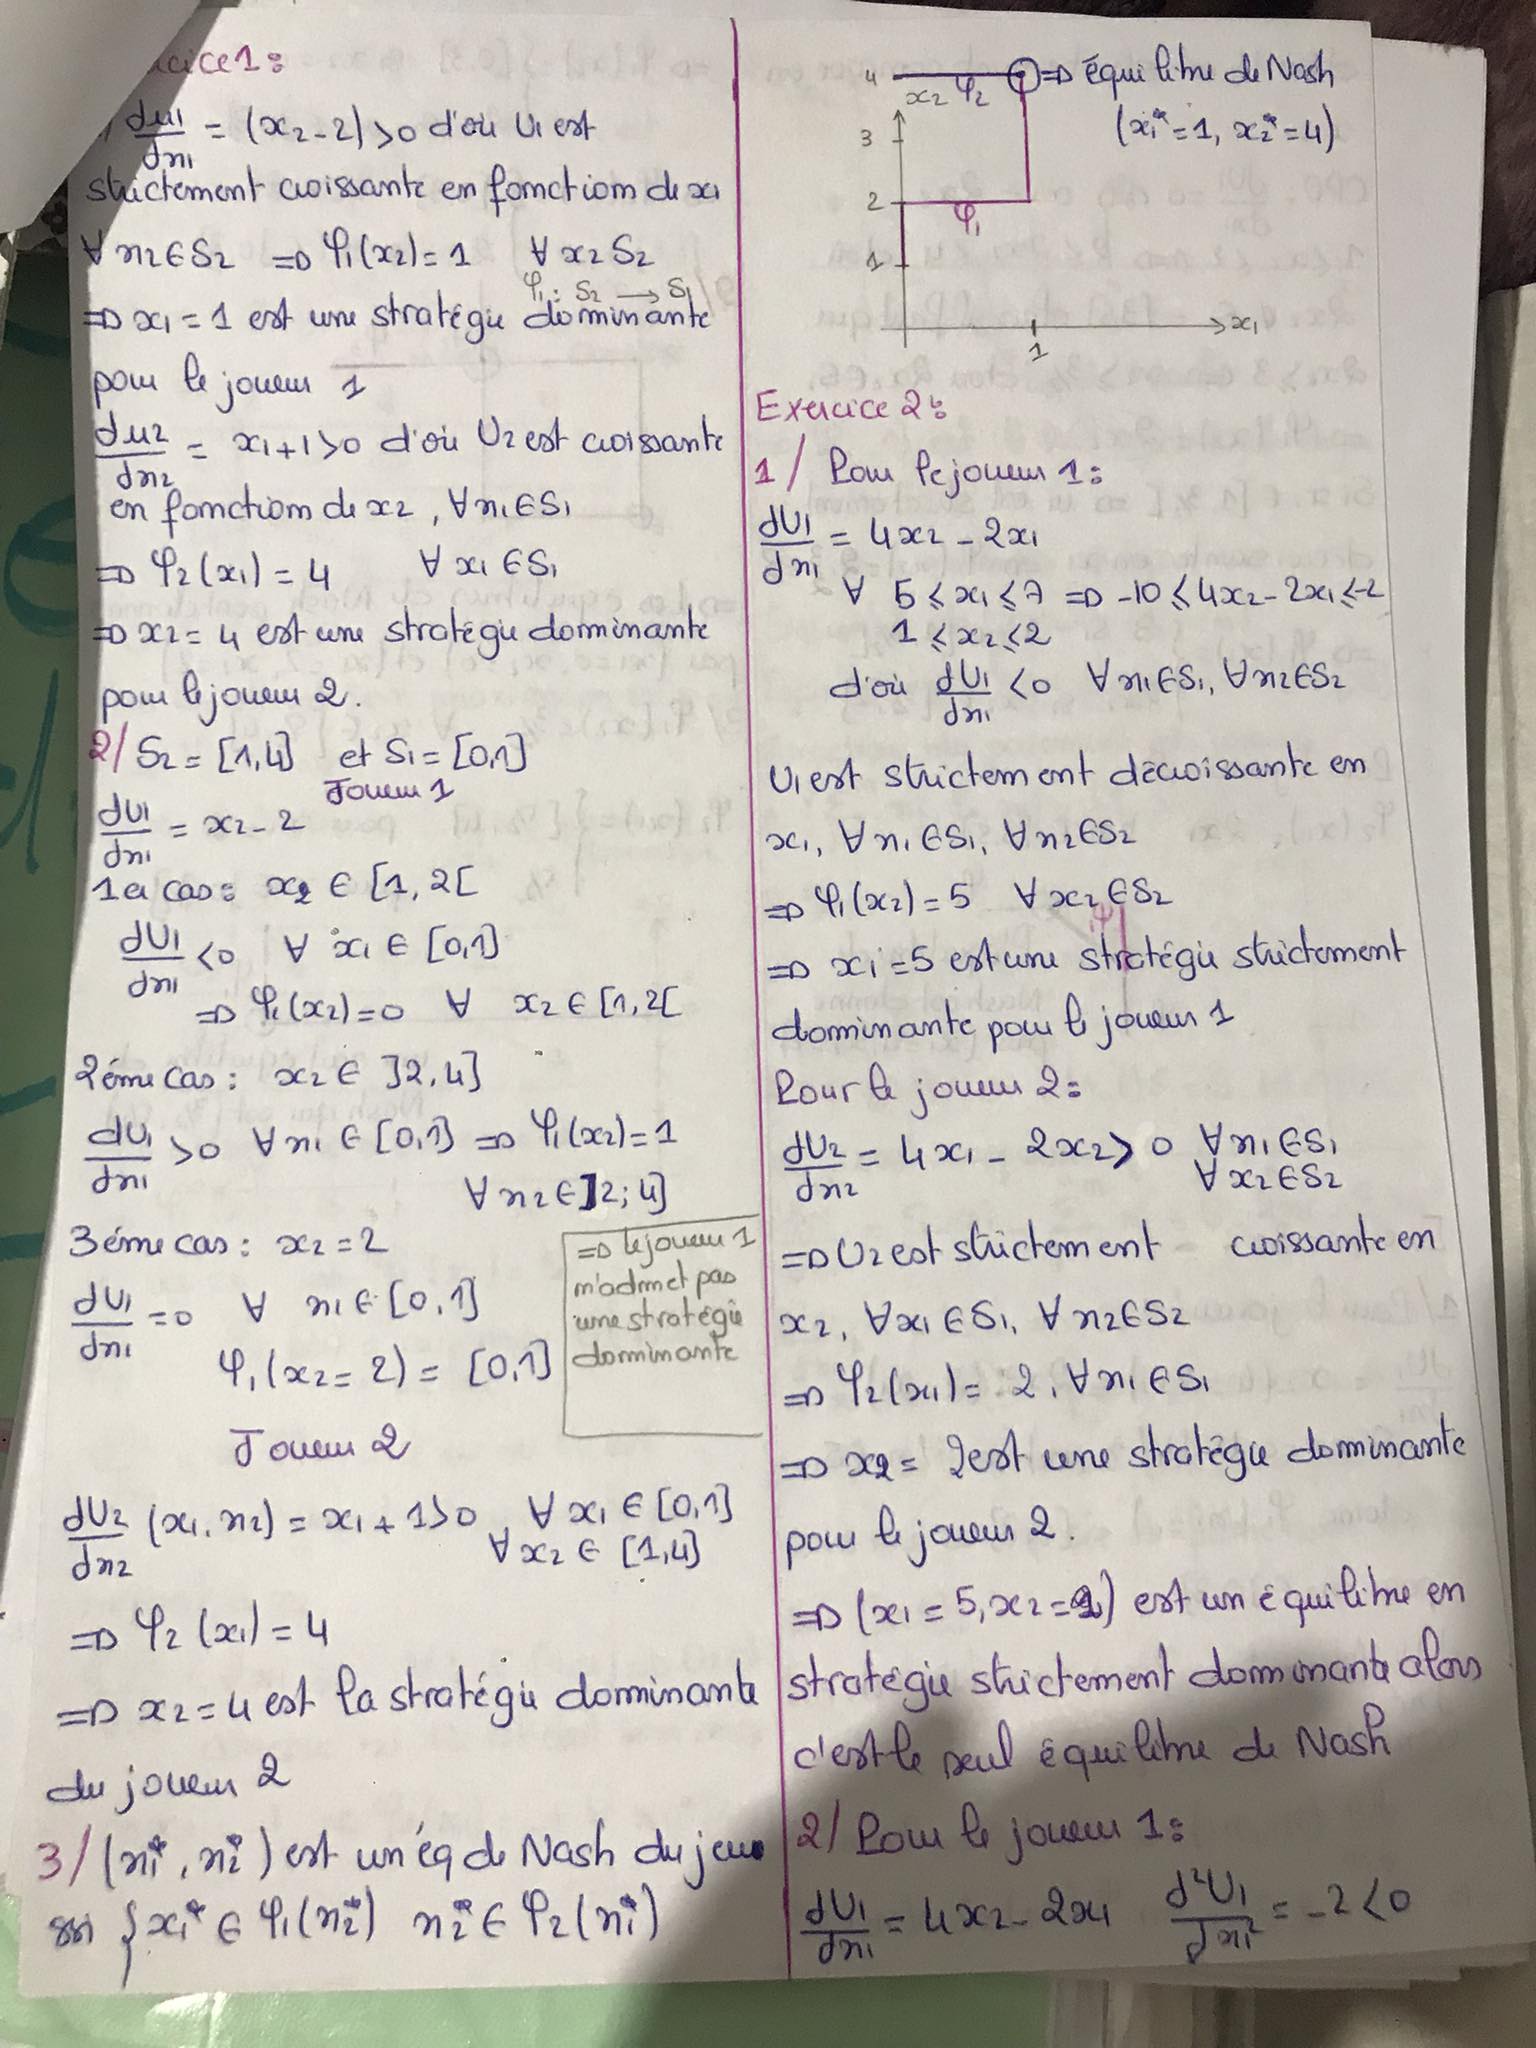 cice 1:
du1/dx1 = (x2-2)>0 d'où U1 est
strictement croissante en fonction de x1
∀ x2∈S2 => φ1(x2)=1 ∀ x2 S2
φ1: S2 → S1
=> x1=1 est une stratégie dominante
pour le joueur 1
du2/dx2 = x1+1>0 d'où U2 est croissante
en fonction de x2, ∀ x1∈S1
=> φ2(x1)=4 ∀ x1∈S1
=> x2=4 est une stratégie dominante
pour le joueur 2.
2/ S2=[1,4] et S1=[0,1]
Joueur 1
dU1/dx1 = x2-2
1er cas: x2 ∈ [1,2[
dU1/dx1 <0 ∀ x1 ∈ [0,1]
=> φ1(x2)=0 ∀ x2 ∈ [1,2[
2éme cas: x2 ∈ ]2,4]
dU1/dx1 >0 ∀ x1 ∈ [0,1] => φ1(x2)=1
∀ x2 ∈ ]2;4]
3éme cas: x2=2
dU1/dx1 =0 ∀ x1 ∈ [0,1]
φ1(x2=2) = [0,1]
=> le joueur 1
n'admet pas
une stratégie
dominante
Joueur 2
dU2/dx2 (x1,x2) = x1+1>0 ∀ x1 ∈ [0,1]
∀ x2 ∈ [1,4]
=> φ2(x1)=4
=> x2=4 est la stratégie dominante
du joueur 2
3/ (x1*, x2*) est un éq de Nash du jeu
ssi { x1* ∈ φ1(x2*) x2* ∈ φ2(x1*)
4 φ2 => équilibre de Nash
x2
(x1*=1, x2*=4)
3
2
φ1
1
x1
1
Exercice 2:
1/ Pour le joueur 1:
dU1/dx1 = 4x2 - 2x1
∀ 5 ≤ x1 ≤ 7 => -10 ≤ 4x2-2x1 ≤ -2
1 ≤ x2 ≤ 2
d'où dU1/dx1 <0 ∀ x1∈S1, ∀ x2∈S2
U1 est strictement décroissante en
x1, ∀ x1∈S1, ∀ x2∈S2
=> φ1(x2)=5 ∀ x2∈S2
=> x1=5 est une stratégie strictement
dominante pour le joueur 1
Pour le joueur 2:
dU2/dx2 = 4x1 - 2x2 > 0 ∀ x1∈S1
∀ x2∈S2
=> U2 est strictement croissante en
x2, ∀ x1∈S1, ∀ x2∈S2
=> φ2(x1)= 2, ∀ x1∈S1
=> x2= 2 est une stratégie dominante
pour le joueur 2.
=> (x1=5, x2=2) est un équilibre en
stratégie strictement dominante alors
c'est le seul équilibre de Nash
2/ Pour le joueur 1:
dU1/dx1 = 4x2 - 2x1 d²U1/dx1² = -2<0